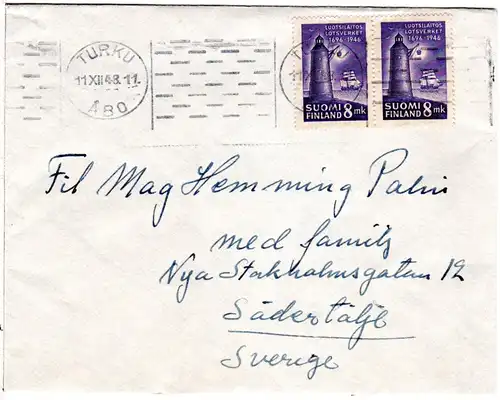 TURKU
11 XII 48. 11.
ÅBO
LUOTSILAITOS
LOTSVERKET
1696-1946
SUOMI
FINLAND 8 mk
LUOTSILAITOS
LOTSVERKET
1696-1946
SUOMI
FINLAND 8 mk
Fil Mag Hemming Palm
med familj
Nya Stockholmsgatan 12
Södertälje
Sverige